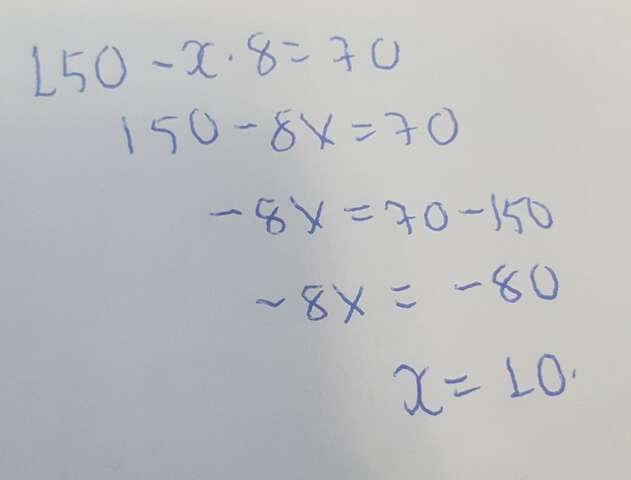 150 - x · 8 = 70
150 - 8x = 70
-8x = 70 - 150
-8x = -80
x = 10.